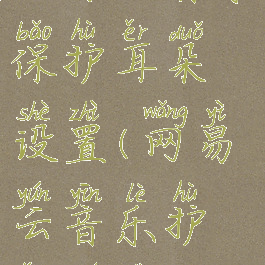 bǎo hù ěr duǒ
保护耳朵
shè zhì wǎng yì
设置(网易
yún yīn lè hù
云音乐护